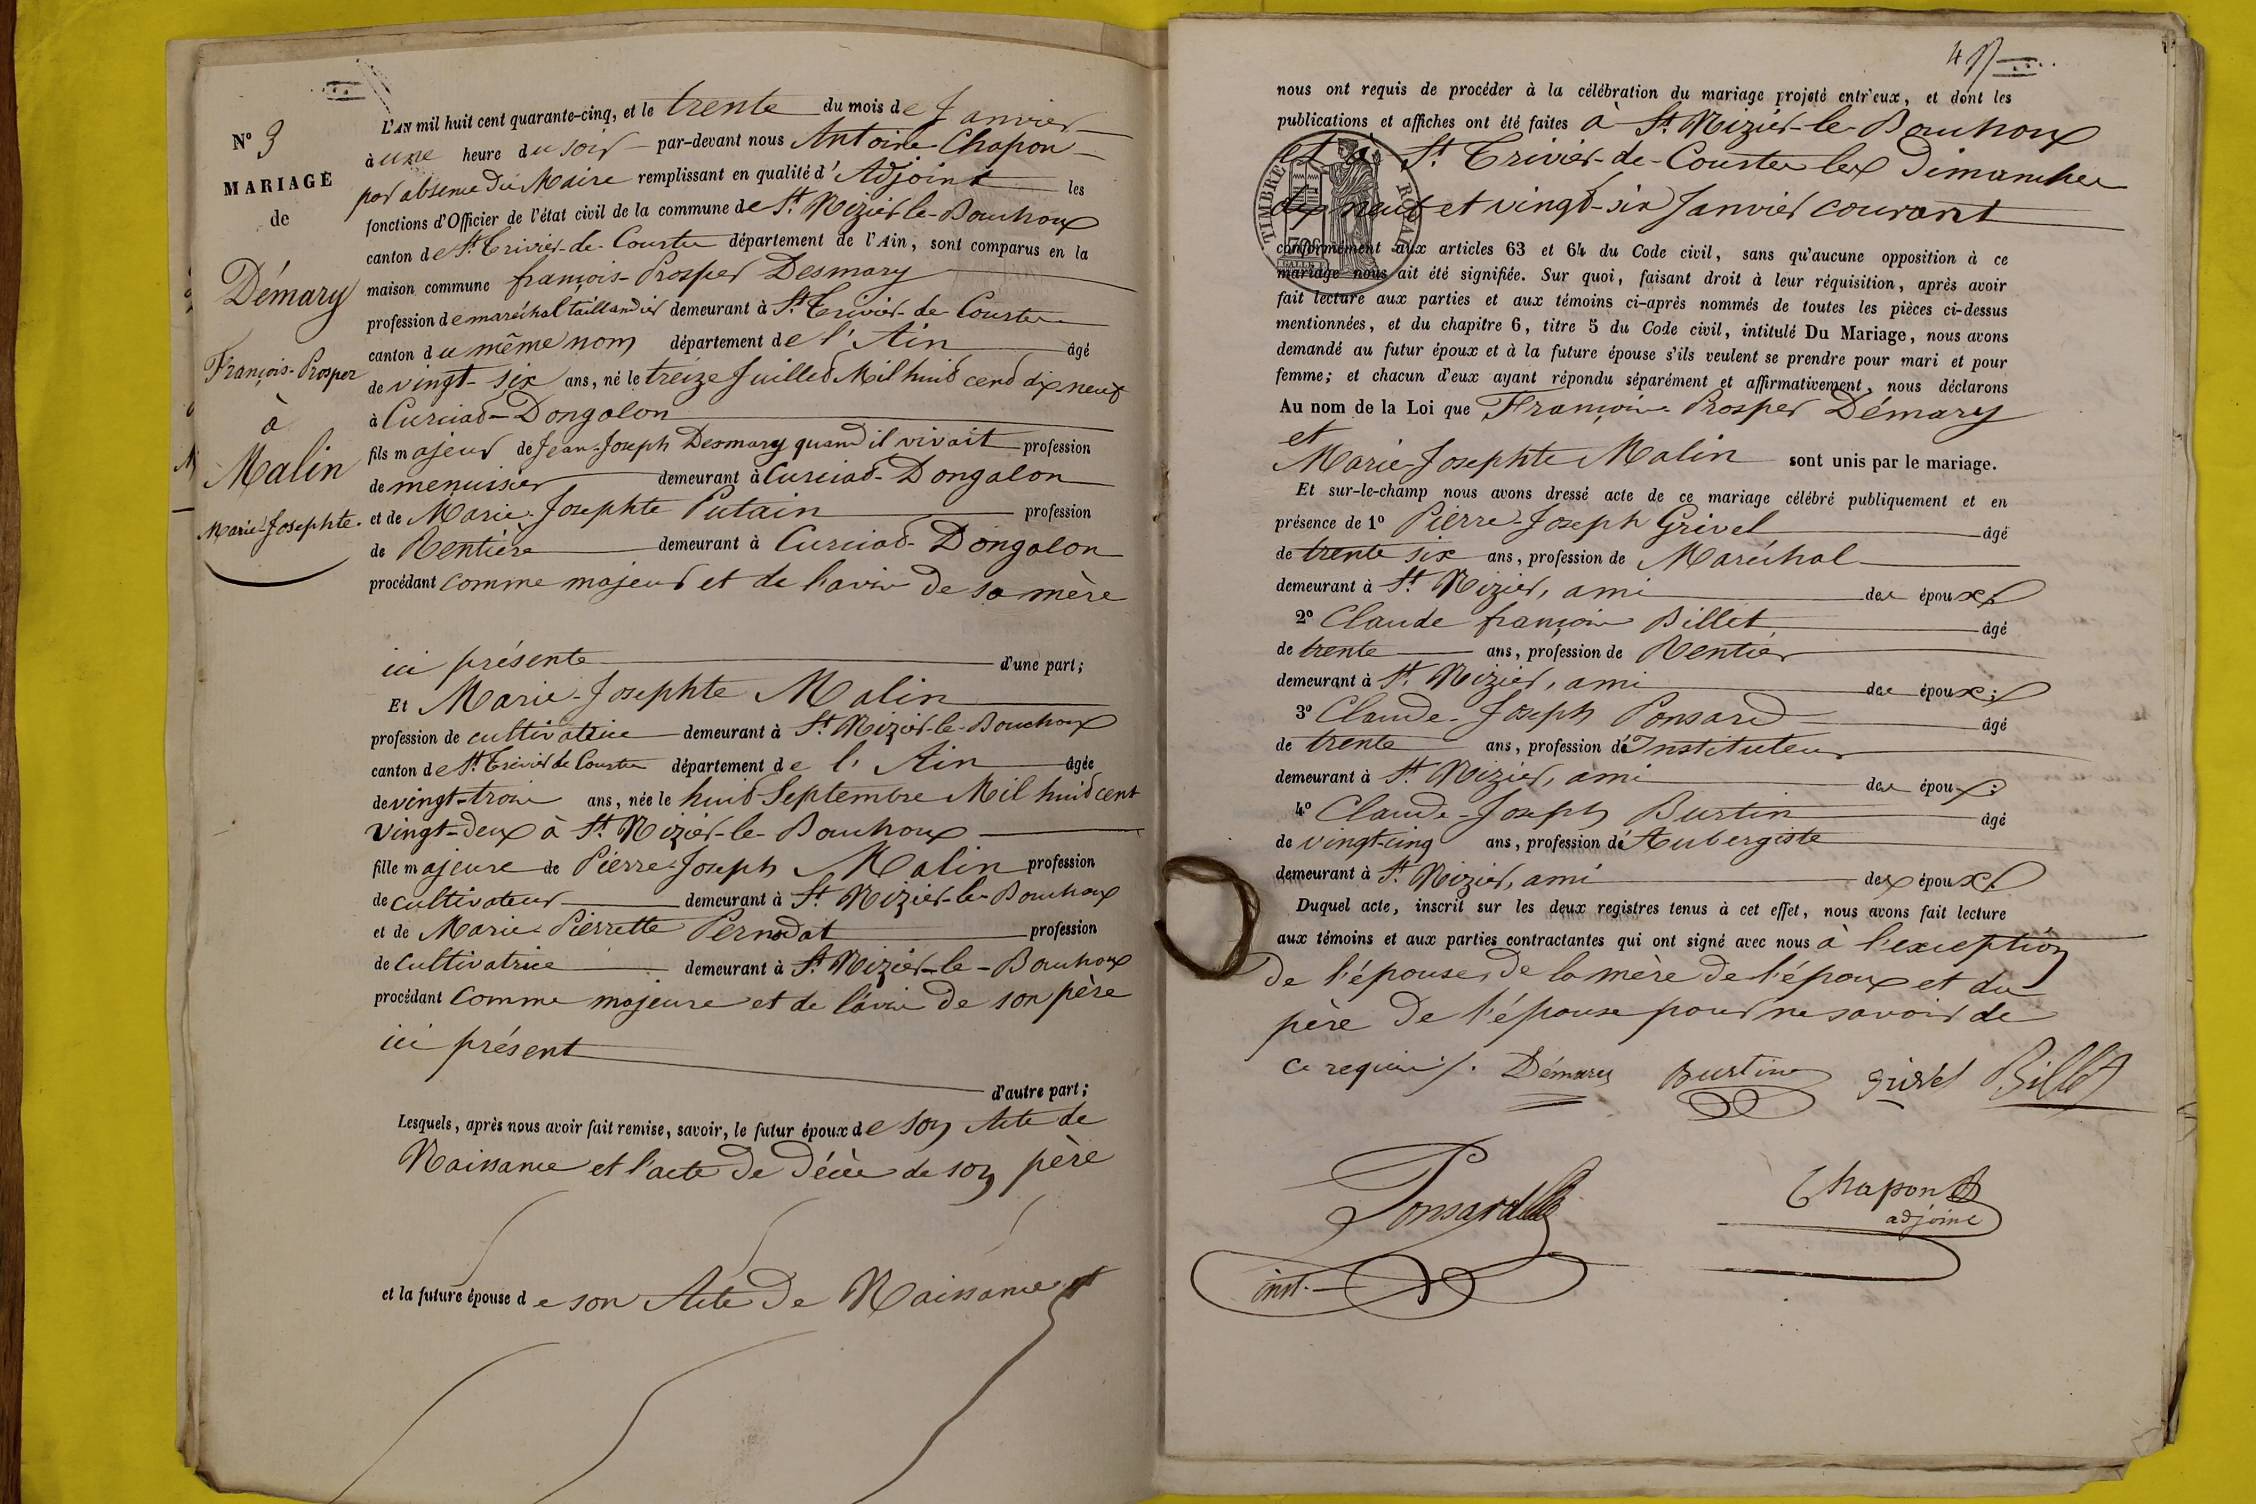 N° 3
MARIAGE
de
Démary
François-Prosper
à
Malin
Marie-Josephte.
L'AN mil huit cent quarante-cinq, et le trente du mois de Janvier
à une heure du soir par-devant nous Antoine Chapon
par absence du Maire remplissant en qualité d'Adjoint les
fonctions d'Officier de l'état civil de la commune de St. Nizier-le-Bouchoux
canton de St. Trivier-de-Courtes département de l'Ain, sont comparus en la
maison commune françois-Prosper Desmary
profession de maréchal taillandier demeurant à St. Trivier-de-Courtes
canton du même nom département de l'Ain âgé
de vingt-six ans, né le treize Juillet Mil huit cent dix-neuf
à Curciat-Dongalon
fils majeur de Jean-Joseph Desmary quand il vivait profession
de menuisier demeurant à Curciat-Dongalon
et de Marie-Josephte Putain profession
de Rentière demeurant à Curciat-Dongalon
procédant comme majeur et de l'avis de sa mère
ici présente d'une part;
Et Marie-Josephte Malin
profession de cultivatrice demeurant à St. Nizier-le-Bouchoux
canton de St. Trivier de Courtes département de l'Ain âgée
de vingt-trois ans, née le huit Septembre Mil huit cent
vingt-deux à St. Nizier-le-Bouchoux
fille majeure de Pierre-Joseph Malin profession
de cultivateur demeurant à St. Nizier-le-Bouchoux
et de Marie-Pierrette Pernodat profession
de cultivatrice demeurant à St. Nizier-le-Bouchoux
procédant comme majeure et de l'avis de son père
ici présent
d'autre part;
Lesquels, après nous avoir fait remise, savoir, le futur époux de son Acte de
Naissance et l'acte de décès de son père
et la future épouse de son Acte de Naissance
4
nous ont requis de procéder à la célébration du mariage projeté entr'eux, et dont les
publications et affiches ont été faites à St. Nizier-le-Bouchoux
et à St. Trivier-de-Courtes les Dimanches
dix neuf et vingt-six Janvier courant
TIMBRE ROYAL
conformément aux articles 63 et 64 du Code civil, sans qu'aucune opposition à ce
mariage nous ait été signifiée. Sur quoi, faisant droit à leur réquisition, après avoir
fait lecture aux parties et aux témoins ci-après nommés de toutes les pièces ci-dessus
mentionnées, et du chapitre 6, titre 5 du Code civil, intitulé Du Mariage, nous avons
demandé au futur époux et à la future épouse s'ils veulent se prendre pour mari et pour
femme; et chacun d'eux ayant répondu séparément et affirmativement, nous déclarons
Au nom de la Loi que François-Prosper Démary
et
Marie-Josephte Malin sont unis par le mariage.
Et sur-le-champ nous avons dressé acte de ce mariage célébré publiquement et en
présence de 1° Pierre-Joseph Grivel âgé
de trente six ans, profession de Maréchal
demeurant à St. Nizier, ami des époux;
2° Claude françois Billet âgé
de trente ans, profession de Rentier
demeurant à St. Nizier, ami des époux;
3° Claude-Joseph Ponsard âgé
de trente ans, profession d'Instituteur
demeurant à St. Nizier, ami des époux;
4° Claude-Joseph Burtin âgé
de vingt-cinq ans, profession d'Aubergiste
demeurant à St. Nizier, ami des époux.
Duquel acte, inscrit sur les deux registres tenus à cet effet, nous avons fait lecture
aux témoins et aux parties contractantes qui ont signé avec nous à l'exception
de l'épouse, de la mère de l'époux et du
père de l'épouse pour ne savoir de
ce requis. Démary Burtin grivel Billet
Ponsard Chapon
adjoint
inst.